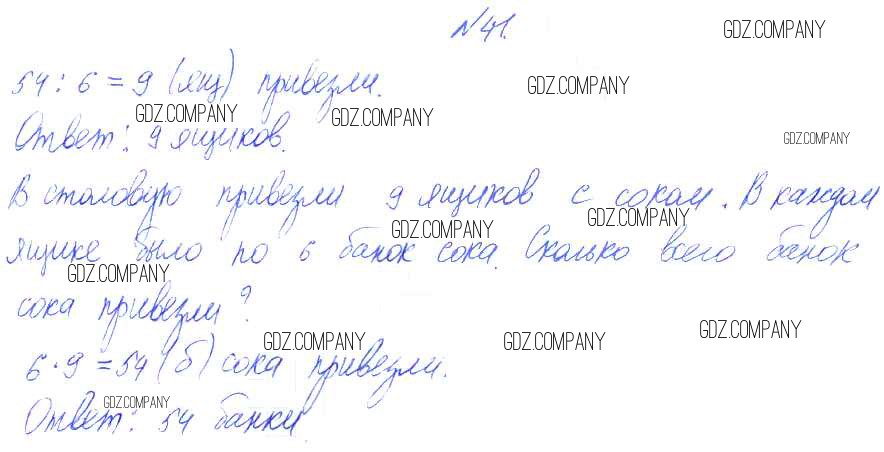 №41.
GDZ.COMPANY
54 : 6 = 9 (ящ) привезли.
GDZ.COMPANY
GDZ.COMPANY GDZ.COMPANY
Ответ: 9 ящиков.
GDZ.COMPANY
В столовую привезли 9 ящиков с соком. В каждом
GDZ.COMPANY GDZ.COMPANY
ящике было по 6 банок сока. Сколько всего банок
GDZ.COMPANY
сока привезли?
GDZ.COMPANY GDZ.COMPANY GDZ.COMPANY
6 · 9 = 54 (б) сока привезли.
GDZ.COMPANY
Ответ: 54 банки